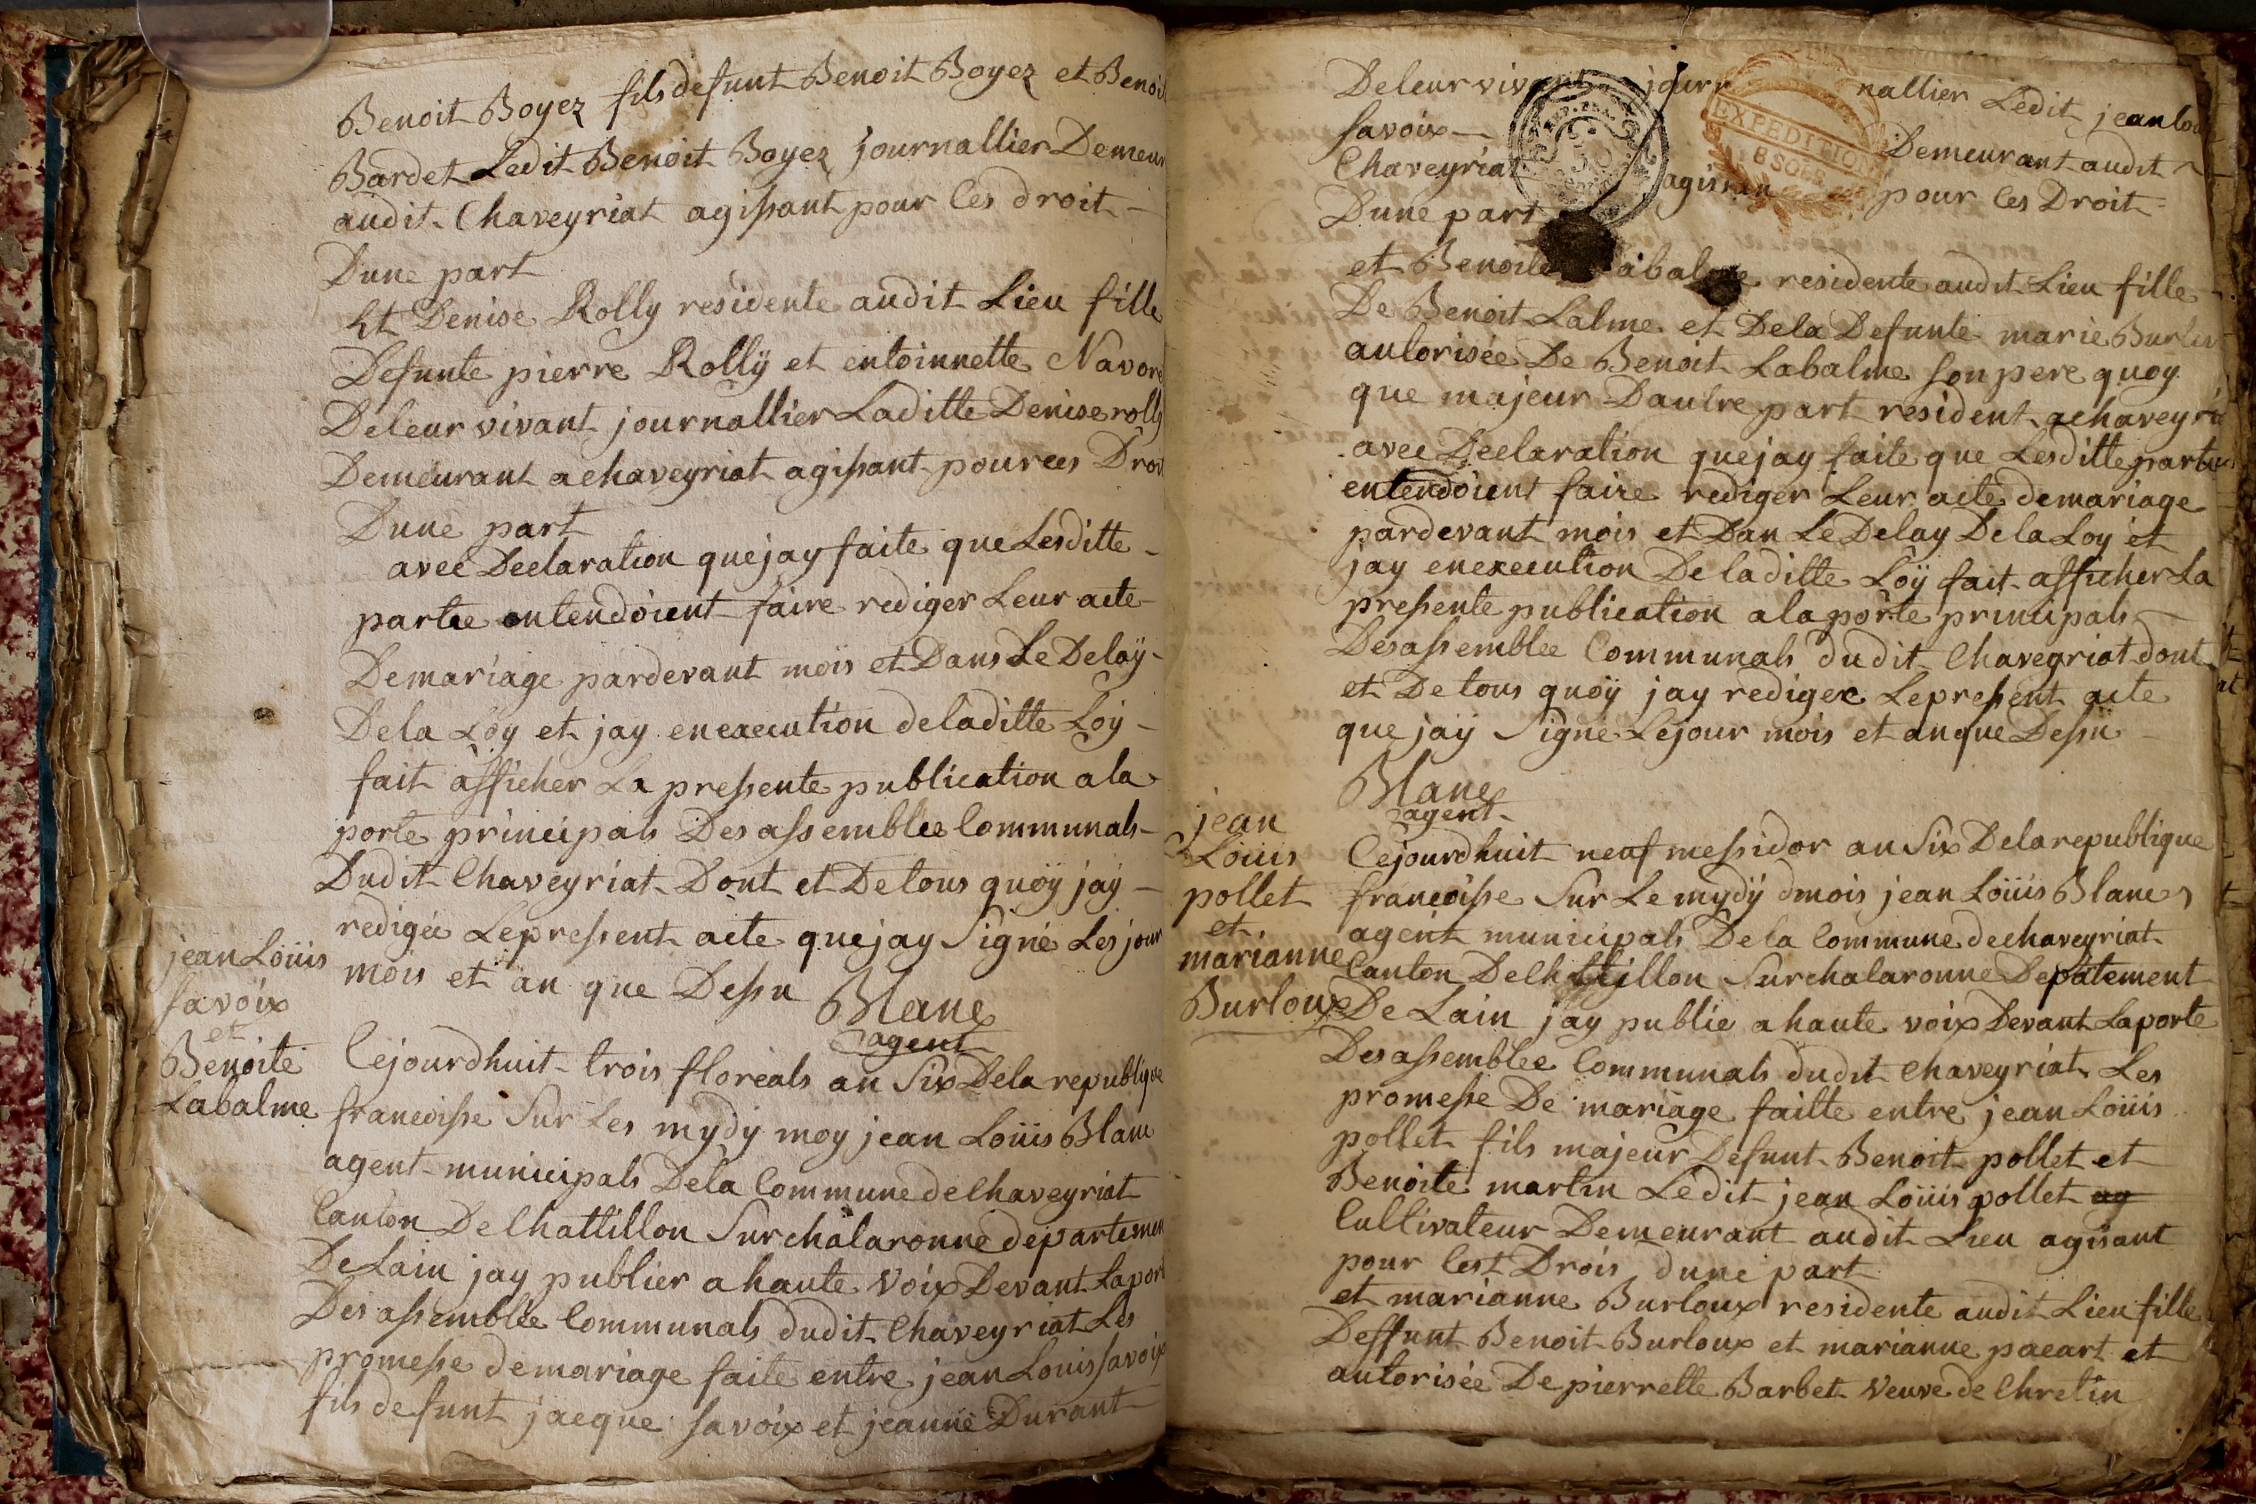 Benoit Boyez fils defunt Benoit Boyez et Benoit
Bardet Ledit Benoit Boyez journallier Demeur
audit Chaveyriat agissant pour ces droit
Dune part
Et Denise Rolly residente audit Lieu fille
Defunte pierre Rollÿ et entoinnette Navore
De leur vivant journallier Laditte Denise rolly
Demeurant a chaveyriat agissant pour ces Droit
Dune part
avec Declaration que jay faite que Lesditte
partie entendoient faire rediger Leur acte
De mariage pardevant moïs et Dans Le Delaÿ
De la Loy et jay en execution de laditte Loÿ
fait afficher La presente publication a la
porte principals Des assemblee Communals
Dudit Chaveyriat Dont et De tous quoÿ jaÿ
redigée Le present acte que jay Signé Les jour
mois et an que Dessu Blanc
agent
jean Loüis
savoix
et
Benoite
Labalme
Cejourdhuit trois floreals an Six De la republique
francoisse Sur Les mydy moy jean Loüis Blanc
agent municipals De la Commune de Chaveyriat
Canton De Chattillon Sur chalaronne departemen
De Lain jay publier a haute voix Devant La port
Des assemblée Communals dudit Chaveyriat Les
promesse de mariage faite entre jean Louis savoix
fils defunt jacque savoix et jeanne Durant
De leur vivant journallier Ledit jean loui
savoix Demeurant audit
Chaveyriat agissan pour ces Droit
Dune part
EXPEDITION
et Benoite abal residente audit Lieu fille
De Benoit Lalme et De la Defunte marie Burlou
autorisée De Benoit Labalme son pere quoy
que majeur Dautre part resident a chaveyria
avec Declaration que jay faite que Lesditte partie
entendoient faire rediger Leur acte de mariage
pardevant mois et Dan Le Delay De la Loy et
jay en execution De laditte Loÿ fait afficher La
presente publication a la porte principals
Des assemblee Communals dudit Chaveyriat dont
et De tous quoÿ jay rediger Le present acte
que jaÿ Signé Le jour mois et an que Dessu
Blanc
agent
jean
Loüis
pollet
et
marianne
Burloux
Cejourdhuit neuf messidor an Six De la republique
francoisse Sur Le mydÿ dmois jean Loüis Blanc
agent municipals De la Commune de chaveyriat
Canton De Chattillon Sur chalaronne Depatement
De Lain jay publie a haute voix Devant La porte
Des assemblee Communals dudit chaveyriat Les
promesse De mariage faitte entre jean Loüis
pollet fils majeur Defunt Benoit pollet et
Benoite martin Ledit jean Loüis pollet ag
Cultivateur Demeurant audit Lieu agisant
pour Cest Drois dune part
et marianne Burloux residente audit Lieu fille
Deffunt Benoit Burloux et marianne pacart et
autorisée De pierrette Barbet veuve de Chretin